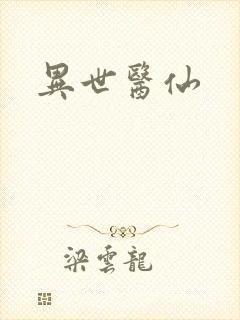 異世醫仙
梁雲龍